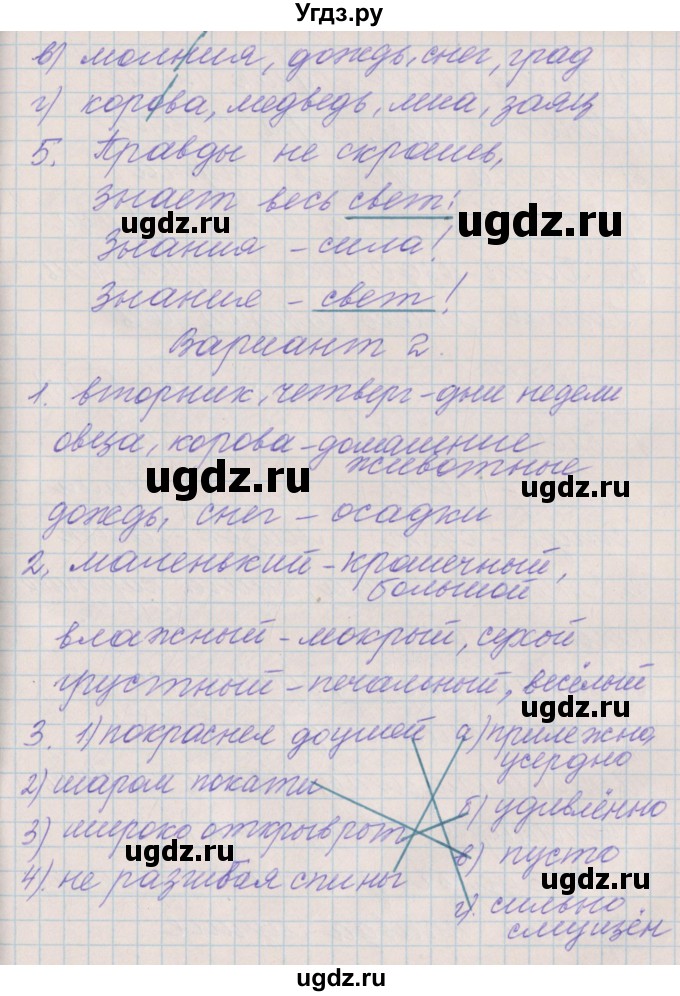 Угдз.ру
в) молния, дождь, снег, град
г) корова, медведь, лиса, заяц
5. Правды не скроешь,
Знает весь свет!
ugdz.ru
ugdz.ru
Знания - сила!
Знание - свет!
Вариант 2.
1. вторник, четверг - дни недели
овца, корова - домашние
животные
ugdz.ru
ugdz.ru
дождь, снег - осадки
2. маленький - крошечный,
большой
влажный - мокрый, сухой
грустный - печальный, весёлый
ugdz.ru
3. 1) покраснел до ушей а) прилежно,
усердно
2) шаром покати
б) удивлённо
3) широко открыв рот
ugdz.ru
в) пусто
4) не разгибая спины
ugdz.ru
г) сильно
смущён
ugdz.ru